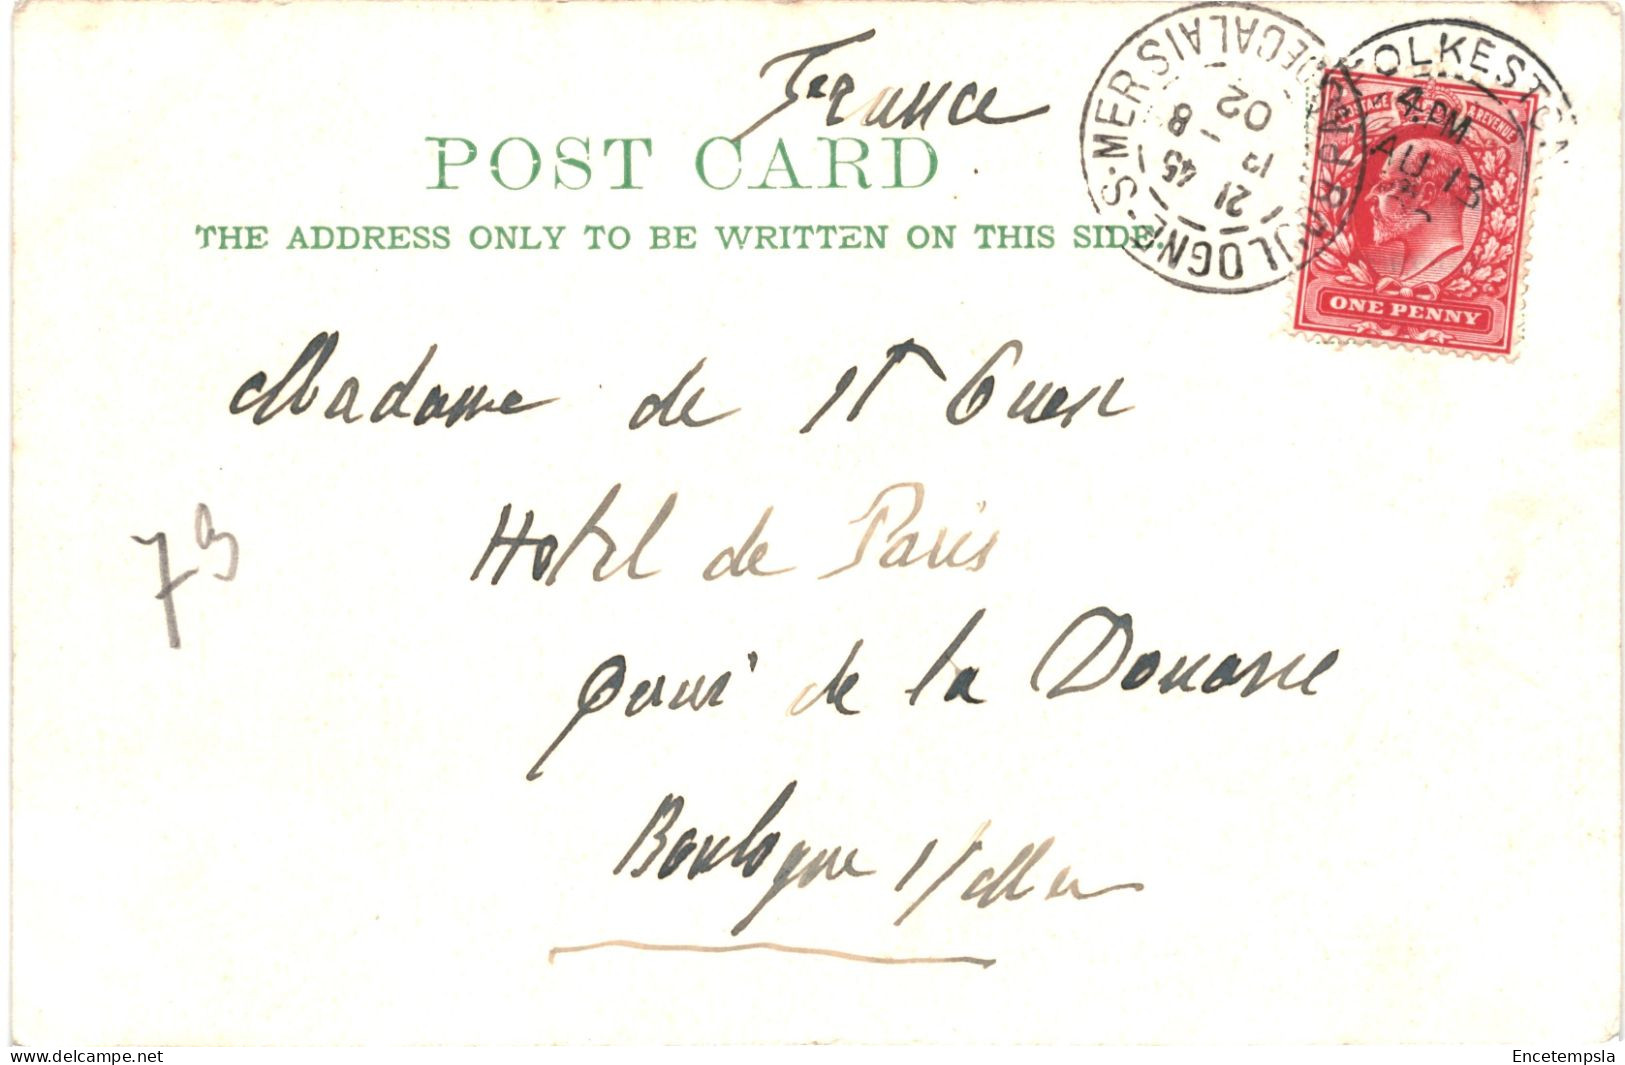 France
POST CARD
THE ADDRESS ONLY TO BE WRITTEN ON THIS SIDE.
FOLKESTONE
4. PM
AU 13
BOULOGNE-S-MER
PAS DE CALAIS
21 45
13 - 8
02
POSTAGE & REVENUE
ONE PENNY
Madame de St Ouen
Hotel de Paris
Quai de la Douane
Boulogne s/Mer
73
www.delcampe.net
Encetempsla